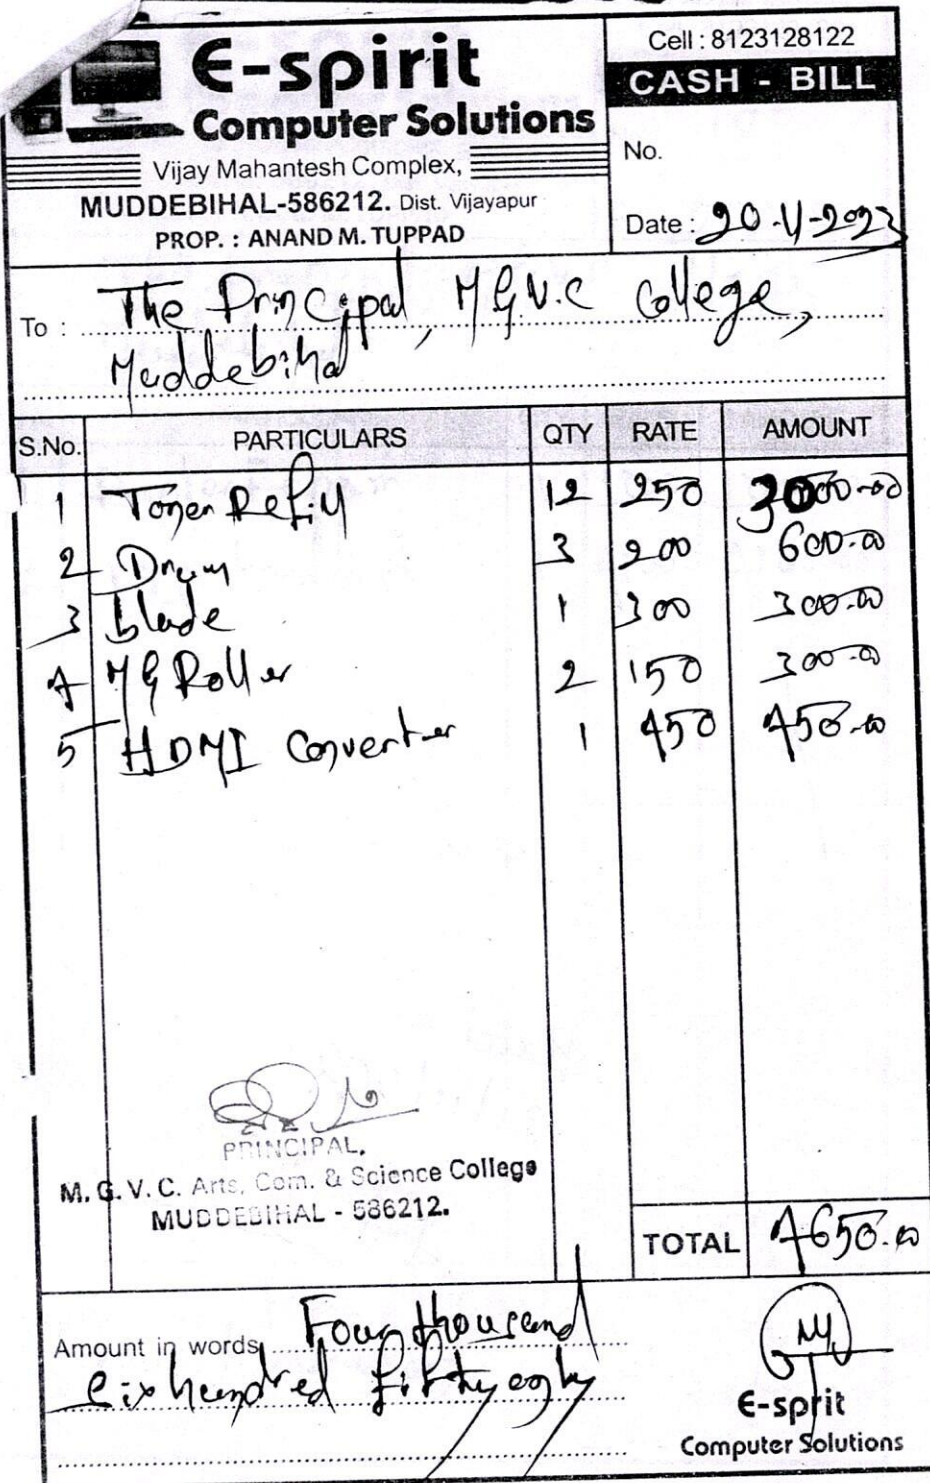 E-spirit
Computer Solutions
Vijay Mahantesh Complex,
MUDDEBIHAL-586212. Dist. Vijayapur
PROP. : ANAND M. TUPPAD
Cell : 8123128122
CASH - BILL
No.
Date : 20-4-2023
To : The Principal, MGV.C College,
Muddebihal
S.No. PARTICULARS QTY RATE AMOUNT
1 Toner Refill 12 250 3000-00
2 Drum 3 200 600-00
3 blade 1 300 300-00
4 MG Roller 2 150 300-00
5 HDMI Converter 1 450 450-00
PRINCIPAL,
M. G. V. C. Arts, Com. & Science College
MUDDEBIHAL - 586212.
TOTAL 4650-00
Amount in words Four thousand
six hundred fifty only
E-sprit
Computer Solutions